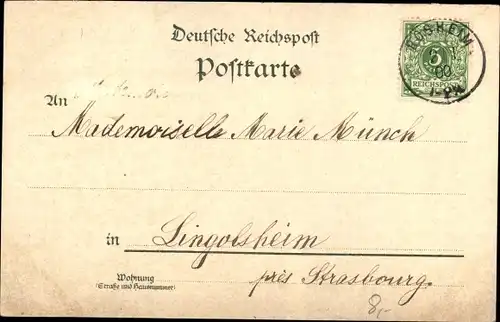 Deutsche Reichspost
Postkarte
ROSHEIM
5
00
7-8V
5
REICHSPOST
An
Mademoiselle Marie Münch
in Lingolsheim
près Strasbourg.
Wohnung
(Straße und Hausnummer)
8,-